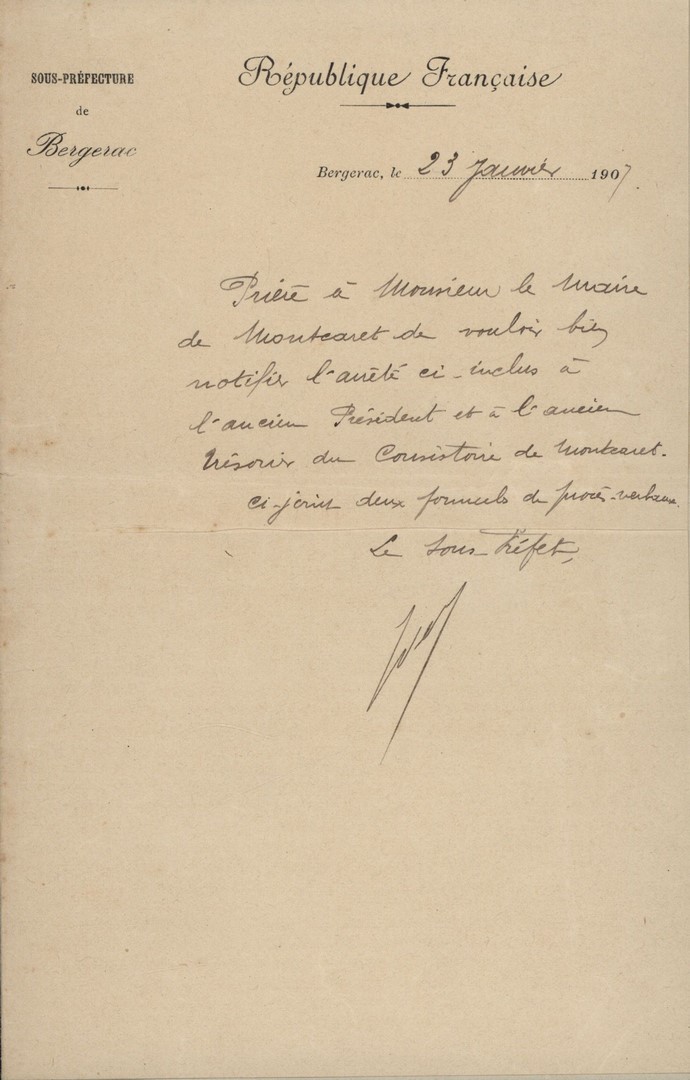 SOUS-PRÉFECTURE
de
Bergerac
République Française
Bergerac, le 23 Janvier 1907.
Prière à Monsieur le Maire
de Montcaret de vouloir bien
notifier l'arrêté ci-inclus à
l'ancien Président et à l'ancien
trésorier du Consistoire de Montcaret.
Ci-joint deux formules de procès-verbaux.
Le Sous-Préfet,